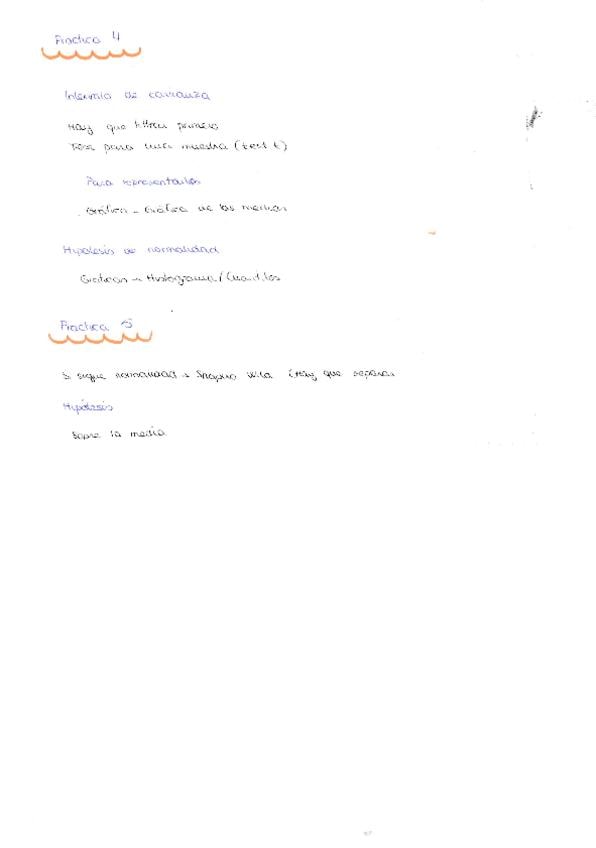 Practica 4
Intervalo de confianza
Hay que filtrar primero
Test para una muestra (test t)
Para representarlos
Gráfica - Gráfica de las medias
Hipótesis de normalidad
Graficas → Histograma /
Practica 5
Si sigue normalidad → Shapiro Wilk (Hay que separar
Hipótesis
Sobre la media